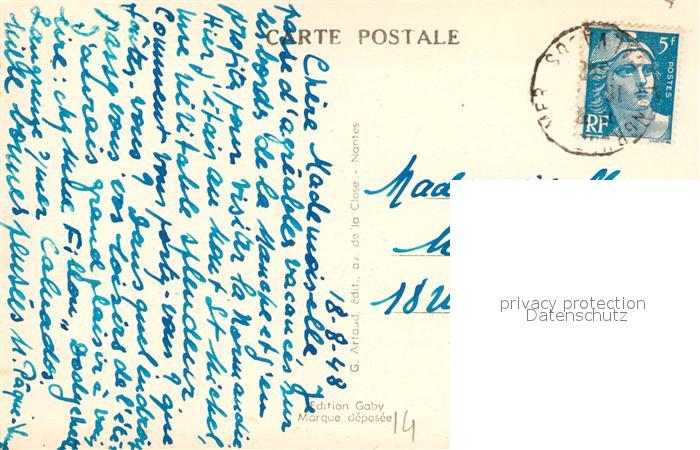 CARTE POSTALE
18-8-48
Chère Mademoiselle, Je
passe d'agréables vacances sur
les bords de la Manche et j'en
profite pour visiter la Normandie
Hier j'étais au Mont St Michel,
une véritable splendeur
Comment vous portez-vous? que
faites-vous? Dans quel endroit
passez vous vos loisirs de l'été
J'aurais grand plaisir à vous
lire: chez Mme Fillon,
Langrune s/mer Calvados
Mille bonnes pensées M.
G. Artaud, édit., av. de la Close - Nantes
Edition Gaby
Marque déposée
14
5F
POSTES
RF
Mademoiselle
18
privacy protection
Datenschutz